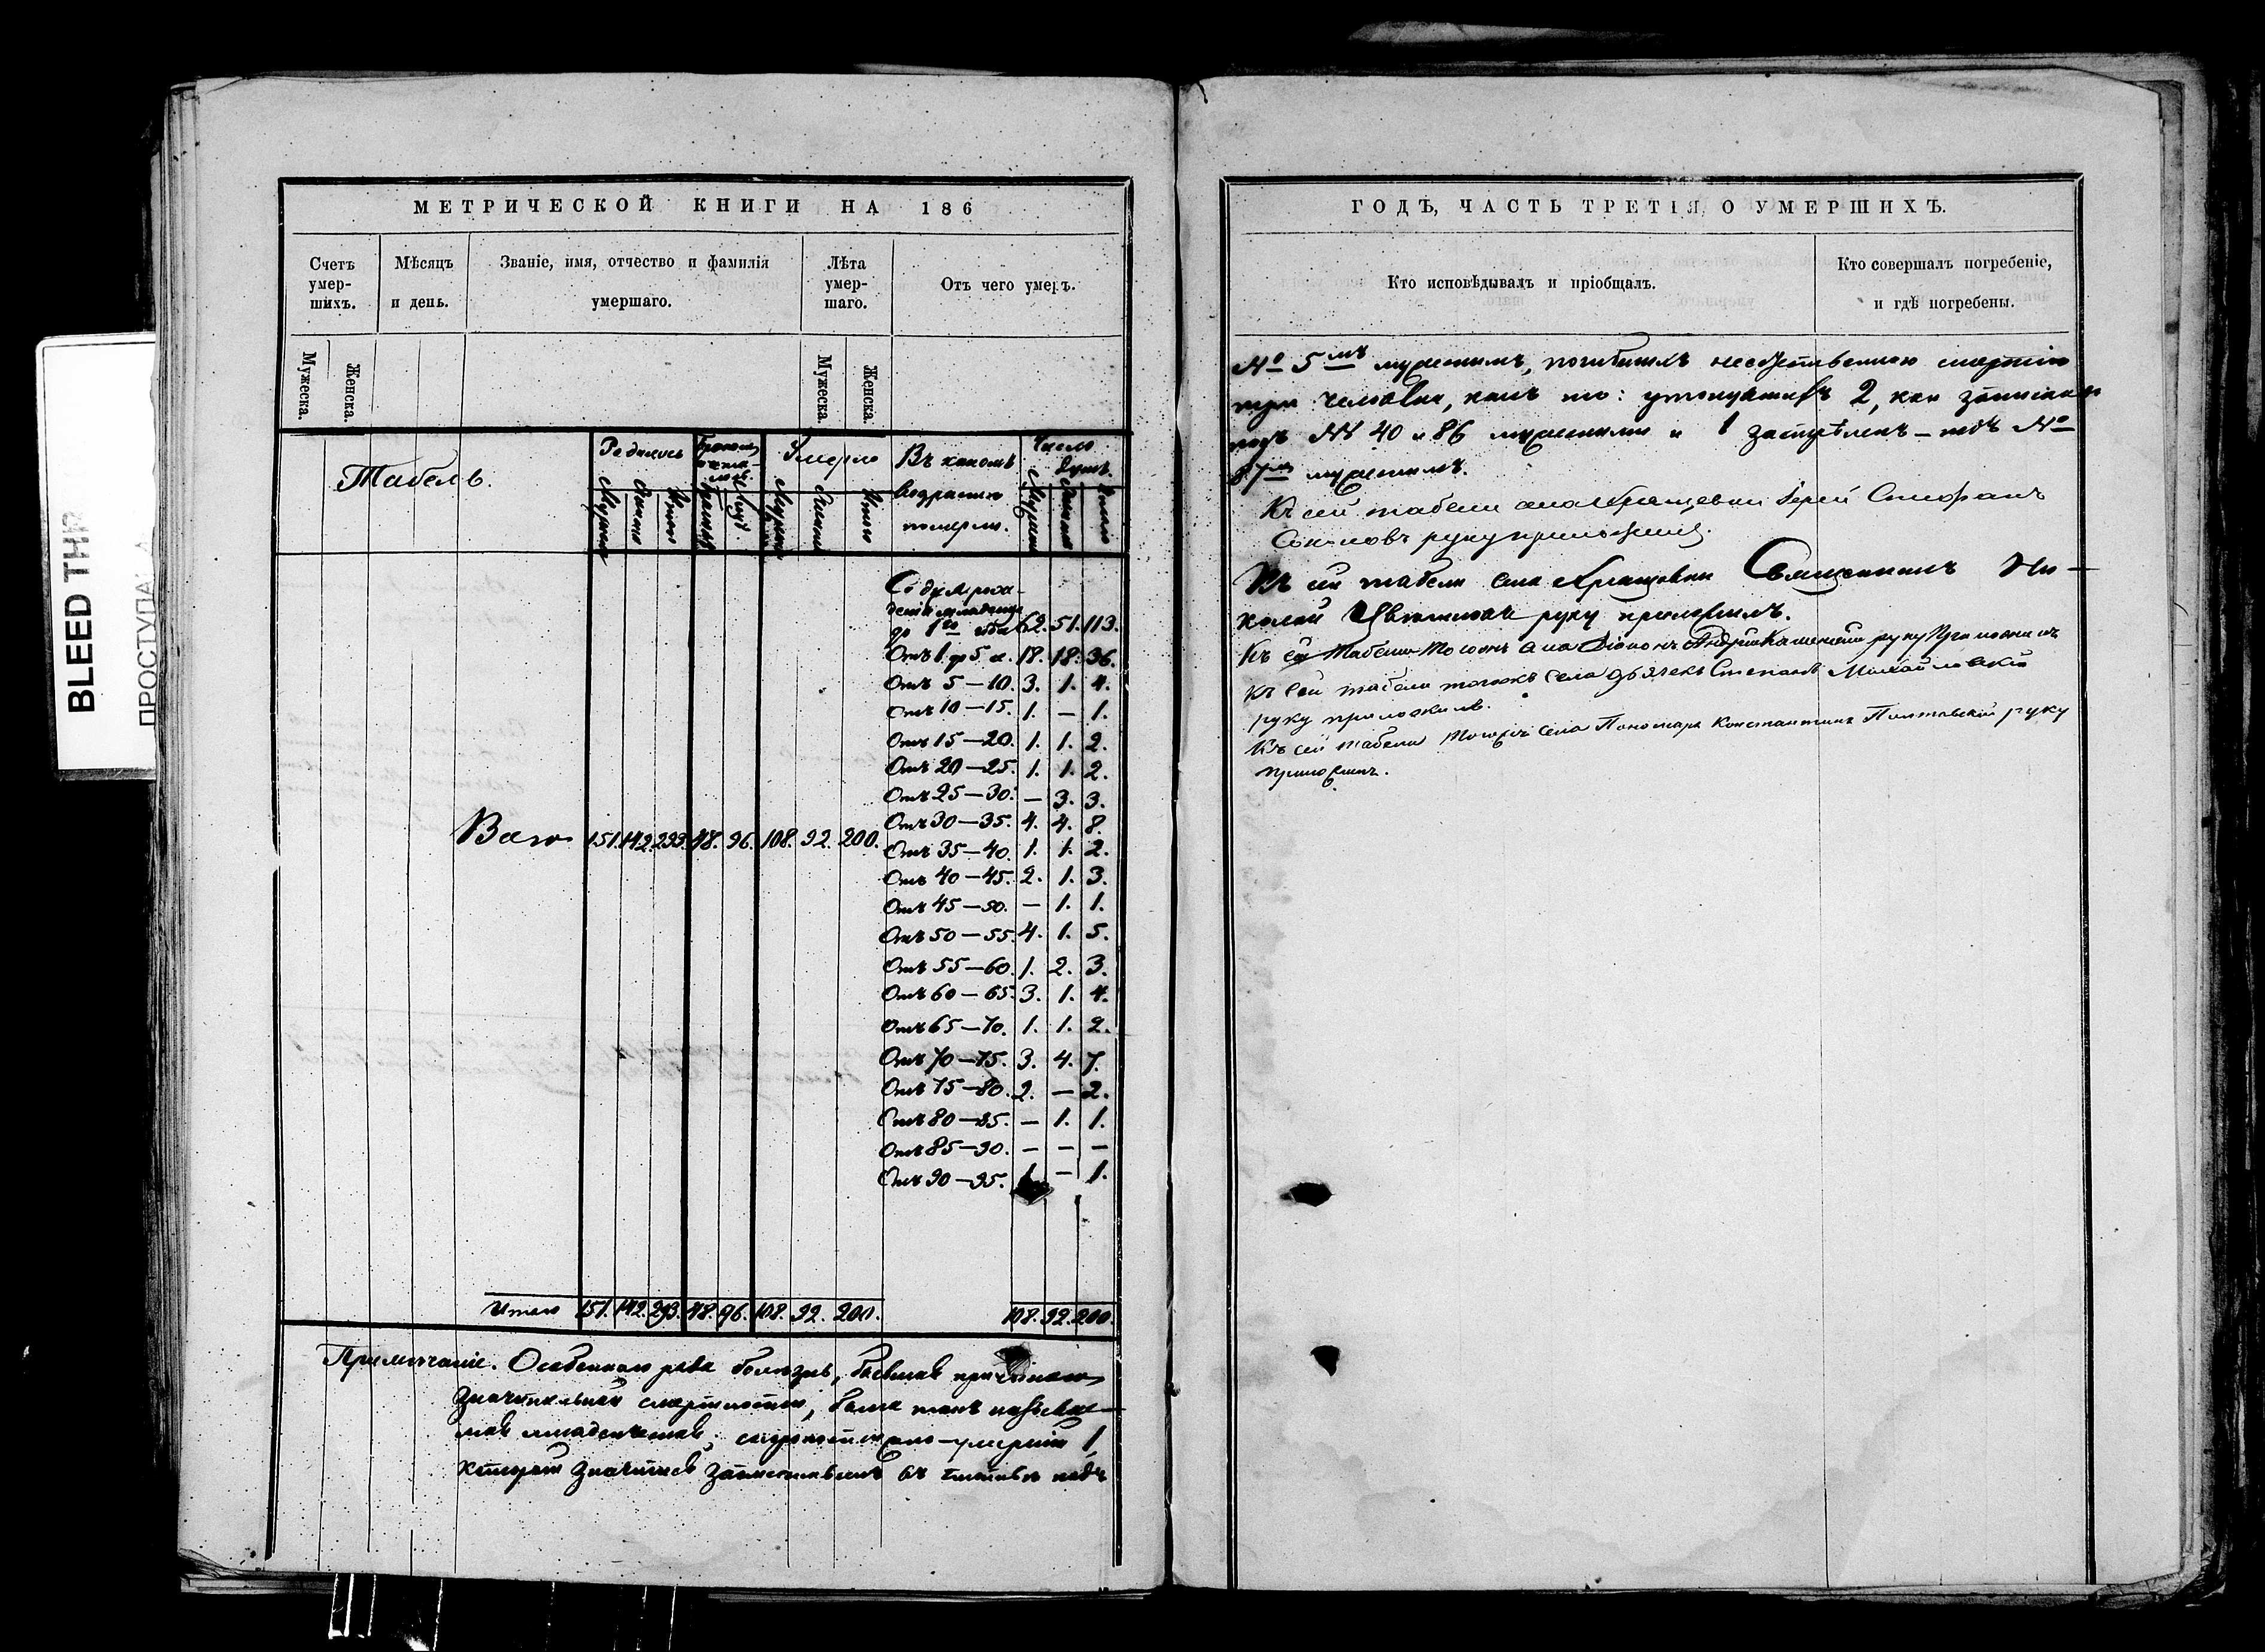 BLEED THR
ПРОСТУПА
МЕТРИЧЕСКОЙ КНИГИ НА 186
Счетъ умер-шихъ.
Мѣсяцъ и день.
Званіе, имя, отчество и фамилія умершаго.
Лѣта умер-шаго.
Отъ чего умеръ.
Мужеска.
Женска.
Мужеска.
Женска.
Табель.
Родилось
Умерло
Въ какомъ возрастѣ померли.
Число душъ.
до 1го года 62. 51. 113.
Отъ 1 до 5 л. 18. 18. 36.
Отъ 5 — 10. 3. 1. 4.
Отъ 10 — 15. 1. — 1.
Отъ 15 — 20. 1. 1. 2.
Отъ 20 — 25. 1. 1. 2.
Отъ 25 — 30. — 3. 3.
Отъ 30 — 35. 4. 4. 8.
Всего 151. 142. 293. 48. 96. 108. 92. 200.
Отъ 35 — 40. 1. 1. 2.
Отъ 40 — 45. 2. 1. 3.
Отъ 45 — 50. — 1. 1.
Отъ 50 — 55. 4. 1. 5.
Отъ 55 — 60. 1. 2. 3.
Отъ 60 — 65. 3. 1. 4.
Отъ 65 — 70. 1. 1. 2.
Отъ 70 — 75. 3. 4. 7.
Отъ 75 — 80. 2. — 2.
Отъ 80 — 85. — 1. 1.
Отъ 85 — 90. — — —
Отъ 90 — 95. 1. — 1.
Итого 151. 142. 293. 48. 96. 108. 92. 200. 108. 92. 200.
Примѣчаніе. Особеннаго рода болѣзнь, бывшая причиною
значительной смертности, была такъ называе-
мая младенческая; скоропостижно-умершій 1,
который значится записаннымъ въ статьѣ подъ
ГОДЪ, ЧАСТЬ ТРЕТІЯ, О УМЕРШИХЪ.
Кто исповѣдывалъ и пріобщалъ.
Кто совершалъ погребеніе, и гдѣ погребены.
№ 5мъ мужескимъ, погибшихъ неестественною смертію
три человѣка, какъ то: утонувшихъ 2, кои записаны
подъ №№ 40 и 86 мужескими и 1 застрѣленъ — подъ №
87мъ мужескимъ.
Къ сей табели села Іерей Стефанъ
Соколовъ руку приложилъ.
Къ сей табели села Священникъ Ни-
колай руку приложилъ.
Къ сей Табели Тогожъ села Діаконъ Андрей руку Приложилъ
Къ сей табели тогожъ села дьячекъ Степанъ Михайловскій
руку приложилъ.
Къ сей табели Тогожъ села Пономарь Константинъ Полтавскій руку
приложилъ.